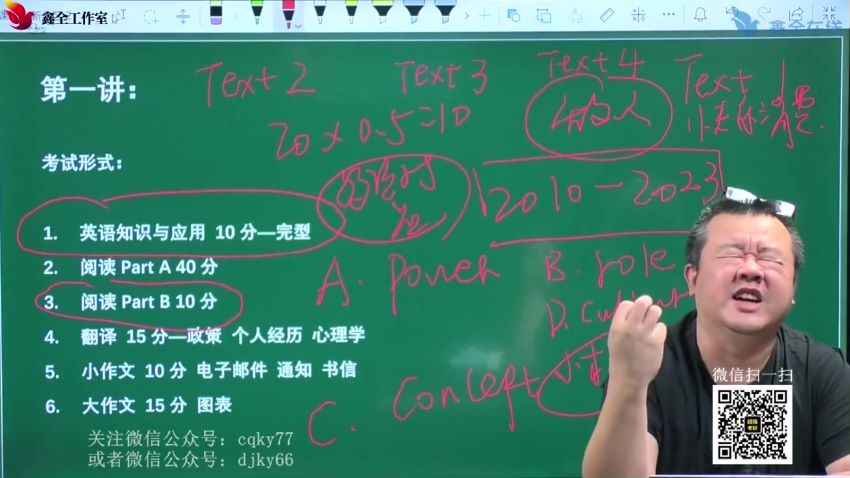 鑫全工作室
鑫全在线
第一讲：
Text 2
Text 3
Text 4
Text 1
20 x 0.5=10
考试形式：
2010－2023
1. 英语知识与应用 10 分—完型
2. 阅读 Part A 40 分
3. 阅读 Part B 10 分
4. 翻译 15 分—政策 个人经历 心理学
5. 小作文 10 分 电子邮件 通知 书信
6. 大作文 15 分 图表
A. power
B. role
C. concept
D.
微信扫一扫
关注微信公众号：cqky77
或者微信公众号：djky66